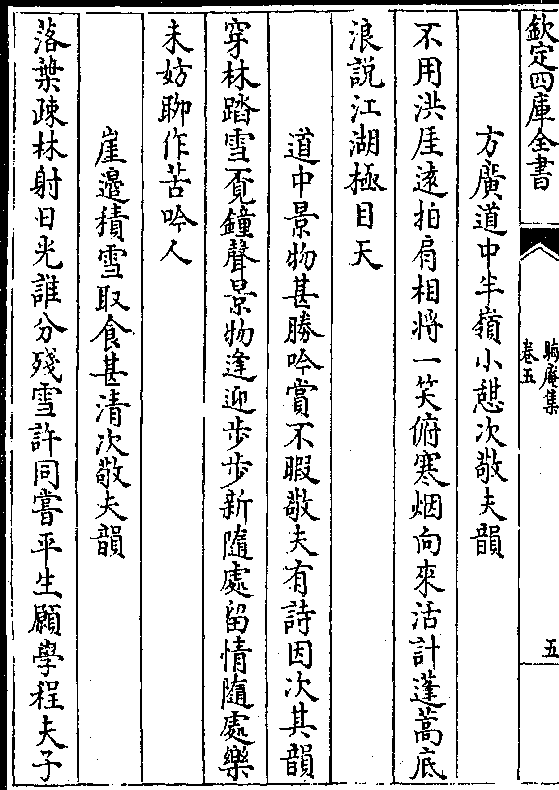 欽定四庫全書
晦庵集
卷五
五
方廣道中半嶺小憇次敬夫韻
不用洪厓逺拍肩相将一笑俯寒烟向來活計蓬蒿底
浪說江湖極目天
道中景物甚勝吟賞不暇敬夫有詩因次其韻
穿林踏雪覓鐘聲景物逢迎步步新隨處留情隨處樂
未妨聊作苦吟人
崖邉積雪取食甚清次敬夫韻
落葉疎林射日光誰分殘雪許同嘗平生願學程夫子